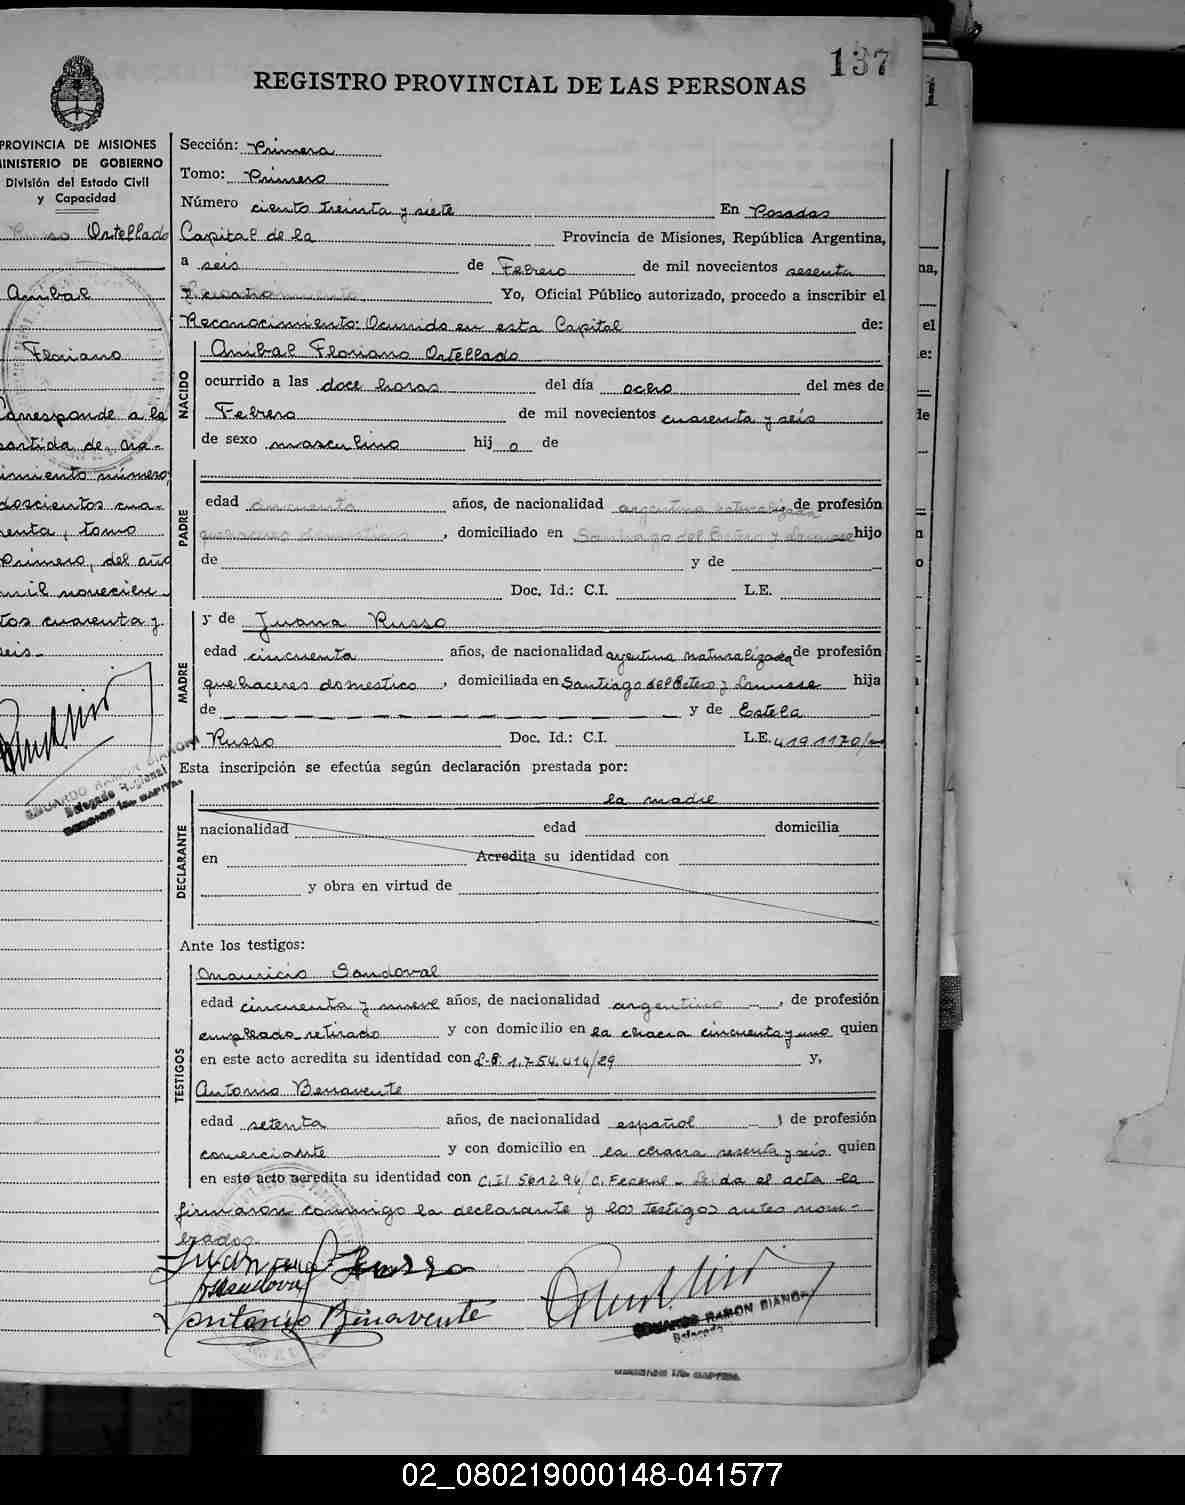 137
REGISTRO PROVINCIAL DE LAS PERSONAS
PROVINCIA DE MISIONES
MINISTERIO DE GOBIERNO
División del Estado Civil
y Capacidad
Russo Ortellado
Anibal
Floriano
Corresponde a la
partida de na-
cimiento número
doscientos cua-
renta, tomo
Primero, del año
mil novecien-
tos cuarenta y
seis.-
EDUARDO RAMON BIANCHI
Delegado Regional
Sección: Primera
Tomo: Primero
Número ciento treinta y siete En Posadas
Capital de la Provincia de Misiones, República Argentina,
a seis de Febrero de mil novecientos sesenta
y cuatro Yo, Oficial Público autorizado, procedo a inscribir el
Reconocimiento: Ocurrido en esta Capital de:
NACIDO
Anibal Floriano Ortellado
ocurrido a las doce horas del día ocho del mes de
Febrero de mil novecientos cuarenta y seis
de sexo masculino hij o de
PADRE
edad cincuenta años, de nacionalidad argentina naturalizada de profesión
quehaceres domésticos, domiciliado en Santiago del Estero y Lanusse hijo
de y de
Doc. Id.: C.I. L.E.
MADRE
y de Juana Russo
edad cincuenta años, de nacionalidad argentina naturalizada de profesión
quehaceres domestico, domiciliada en Santiago del Estero y Lanusse hija
de y de Estela
Russo Doc. Id.: C.I. L.E.
Esta inscripción se efectúa según declaración prestada por:
DECLARANTE
la madre
nacionalidad edad domicilia
en Acredita su identidad con
y obra en virtud de
Ante los testigos:
TESTIGOS
Mauricio Sandoval
edad cincuenta y nueve años, de nacionalidad argentino, de profesión
empleado retirado y con domicilio en la chacra cincuenta y uno quien
en este acto acredita su identidad con 1.754.414/29 y,
Antonio Benavente
edad setenta años, de nacionalidad español, de profesión
comerciante y con domicilio en la chacra sesenta y seis quien
en este acto acredita su identidad con C.I. 561296/C. Federal - Leída el acta la
firmaron conmigo la declarante y los testigos antes nom-
brados.
Juana Russo
MSandoval
Antonio Benavente
EDUARDO RAMON BIANCHI
Delegado
02_080219000148-041577